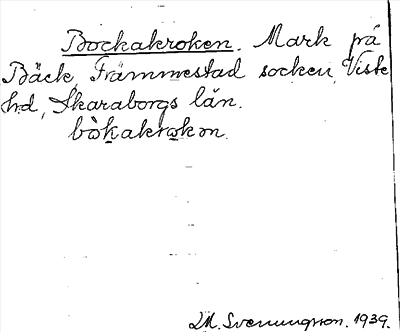 Bockakroken. Mark på
Bäck, Främmestad socken, Viste
hd, Skaraborgs län.
bòkakrokon.
M. Svenungsson. 1939.